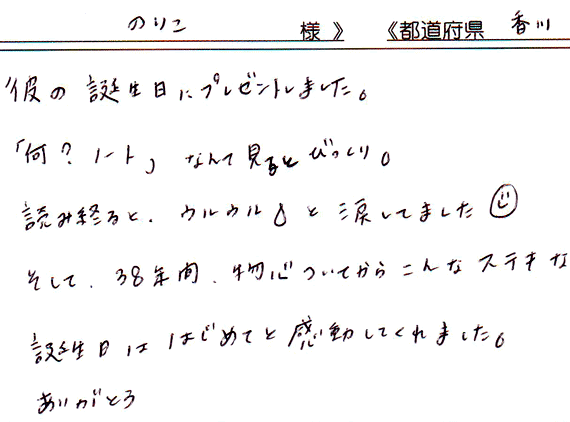 のりこ 様 》 《都道府県 香川
彼の誕生日にプレゼントしました。
「何?ノート」なんて見るとびっくり。
読み終ると、ウルウルと涙してました
そして、38年間、物心ついてからこんなステキな
誕生日ははじめてと感動してくれました。
ありがとう